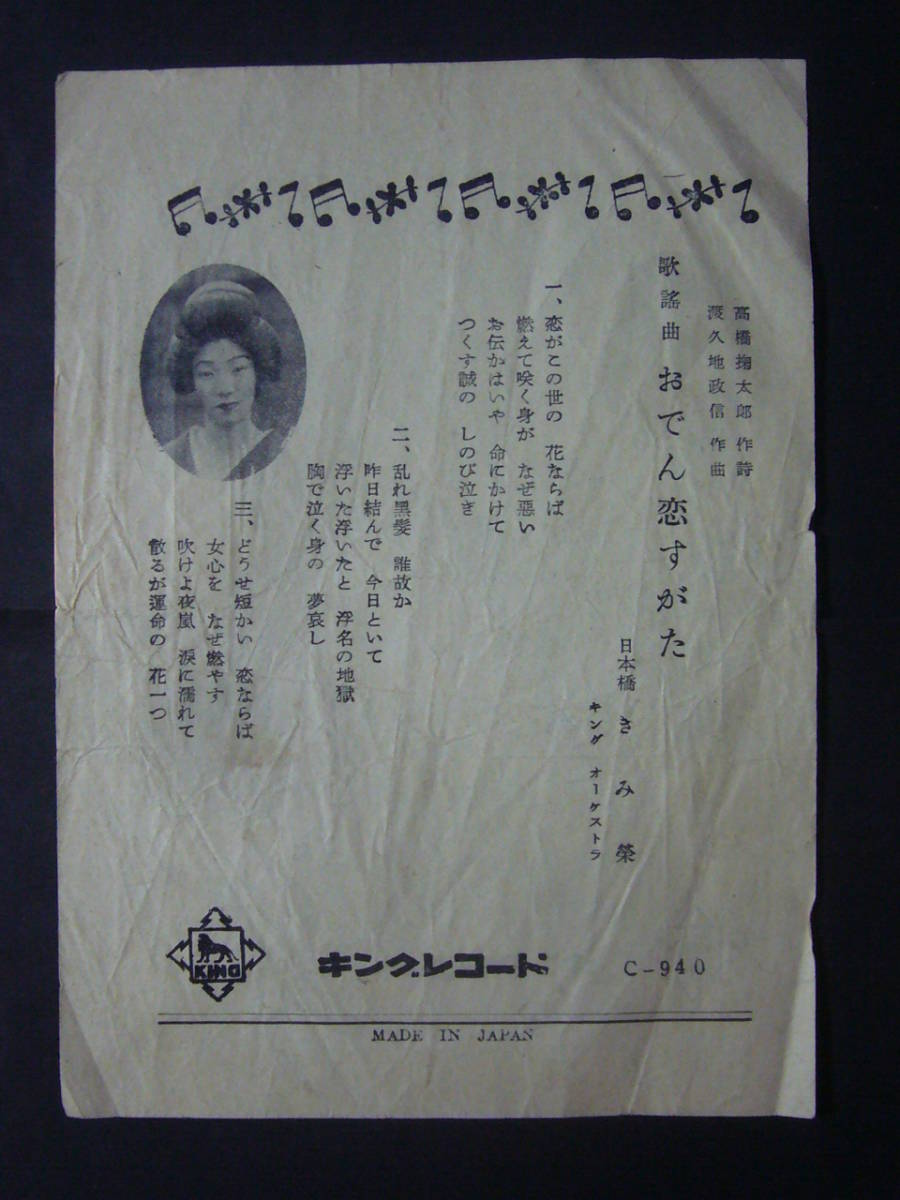 高橋掬太郎 作詩
渡久地政信 作曲
歌謡曲 おでん恋すがた
日本橋 きみ榮
キング オーケストラ
一、恋がこの世の 花ならば
燃えて咲く身が なぜ悪い
お伝かはいや 命にかけて
つくす誠の しのび泣き
二、乱れ黒髪 誰故か
昨日結んで 今日といて
浮いた浮いたと 浮名の地獄
胸で泣く身の 夢哀し
三、どうせ短かい 恋ならば
女心を なぜ燃やす
吹けよ夜嵐 涙に濡れて
散るが運命の 花一つ
KING
キングレコード
C-940
MADE IN JAPAN